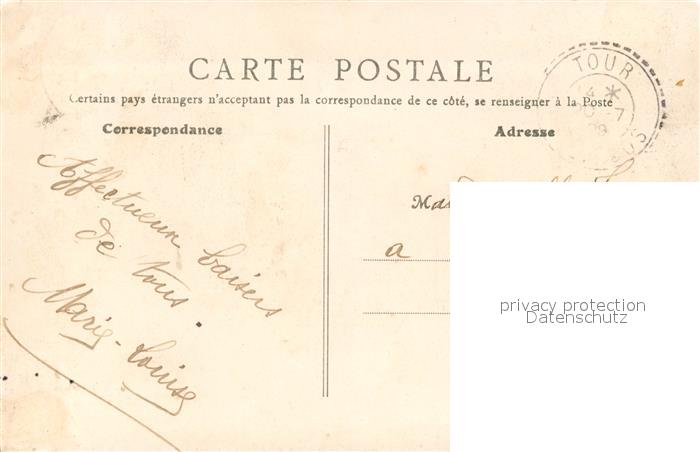 CARTE POSTALE
Certains pays étrangers n'acceptant pas la correspondance de ce côté, se renseigner à la Poste
Correspondance
Adresse
TOUR
4 *
-7
09
Affectueux baisers
de tous.
Marie-Louise
M
a
privacy protection
Datenschutz